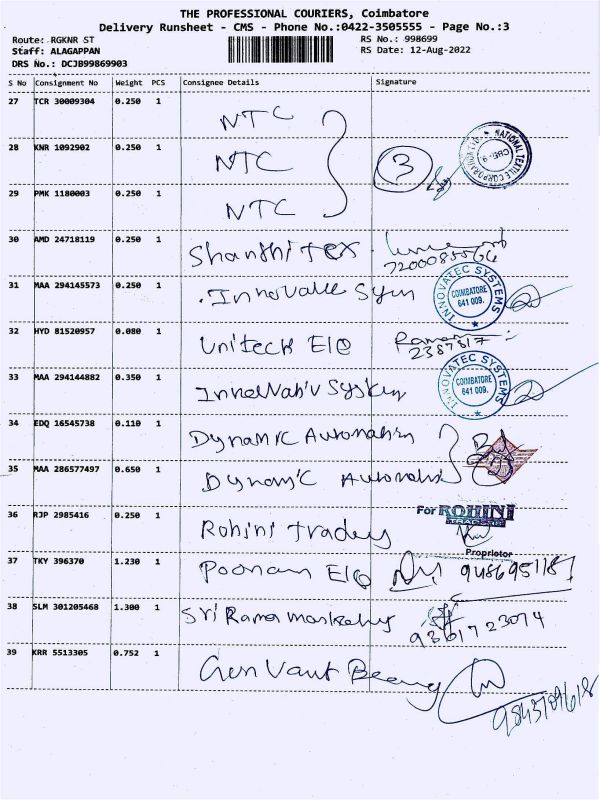 THE PROFESSIONAL COURIERS, Coimbatore
Delivery Runsheet - CMS - Phone No.:0422-3505555 - Page No.:3
Route: RGKNR ST RS No.: 998699
Staff: ALAGAPPAN RS Date: 12-Aug-2022
DRS No.: DCJB99869903
S No Consignment No Weight PCS Consignee Details Signature
27 TCR 30009304 0.250 1 NTC
28 KNR 1092902 0.250 1 NTC 3 NATIONAL TEXTILE CORPORATION CBE-9
29 PMK 1180003 0.250 1 NTC
30 AMD 24718119 0.250 1 Shanthi Tex
31 MAA 294145573 0.250 1 INNOVATEC SYSTEMS COIMBATORE 641 009.
32 HYD 81520957 0.080 1 Unitech Ele Raman
2387817
33 MAA 294144882 0.350 1 INNOVATEC SYSTEMS COIMBATORE 641 009.
34 EDQ 16545738 0.110 1 Dynamic Automation
35 MAA 286577497 0.650 1 Dynamic
36 RJP 2985416 0.250 1 Rohini Traders For ROHINI TRADERS
Proprietor
37 TKY 396370 1.230 1 Poonam Ele
38 SLM 301205468 1.300 1 Sri Rama 9361723074
39 KRR 5513305 0.752 1